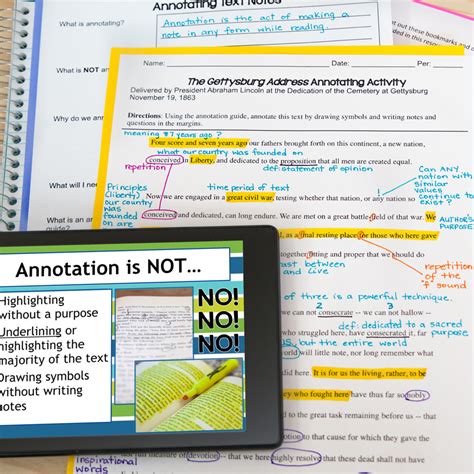 Annotating Text Notes
What is annotating?
Annotation is the act of making a
note in any form while reading.
What is NOT an
Why do we ann
What will I need
What is an an
guide?
out these bookmarks and
ded in this resour
Name: Date: Per:
The Gettysburg Address Annotating Activity
Delivered by President Abraham Lincoln at the Dedication of the Cemetery at Gettysburg
November 19, 1863
Directions: Using the annotation guide, annotate this text by drawing symbols and writing notes
and questions in the margins.
meaning 87 years ago?
Four score and seven years ago our fathers brought forth on this continent, a new nation,
what our country was founded on
conceived in Liberty, and dedicated to the proposition that all men are created equal.
repetition
def: statement of opinion
Can ANY
nation with
similar
values
continue to
exist?
Principles
(liberty)
our country
was
founded
on are
time period of text
Now we are engaged in a great civil war, testing whether that nation, or any nation so
conceived and dedicated, can long endure. We are met on a great battlefield of that war. We
AUTHOR'S
PURPOSE
as a final resting place for those who gave
together fitting and proper that we should do
ast between
and live
repetition
of the
f sound
of three is a powerful technique.
2 3
we can not consecrate -- we can not hallow
def: dedicated to a sacred
purpose
who struggled here, have consecrated it, far
US, but the entire world
world will little note, nor long remember what
did here. It is for us the living, rather, to be
they who fought here have thus far so nobly
to the great task remaining before us -- that
devotion to that cause for which they gave the
measure of devotion -- that we here highly resolve that these
inspirational
words
Annotation is NOT...
Highlighting
without a purpose
Underlining or
highlighting the
majority of the text
Drawing symbols
without writing
notes
NO!
NO!
NO!